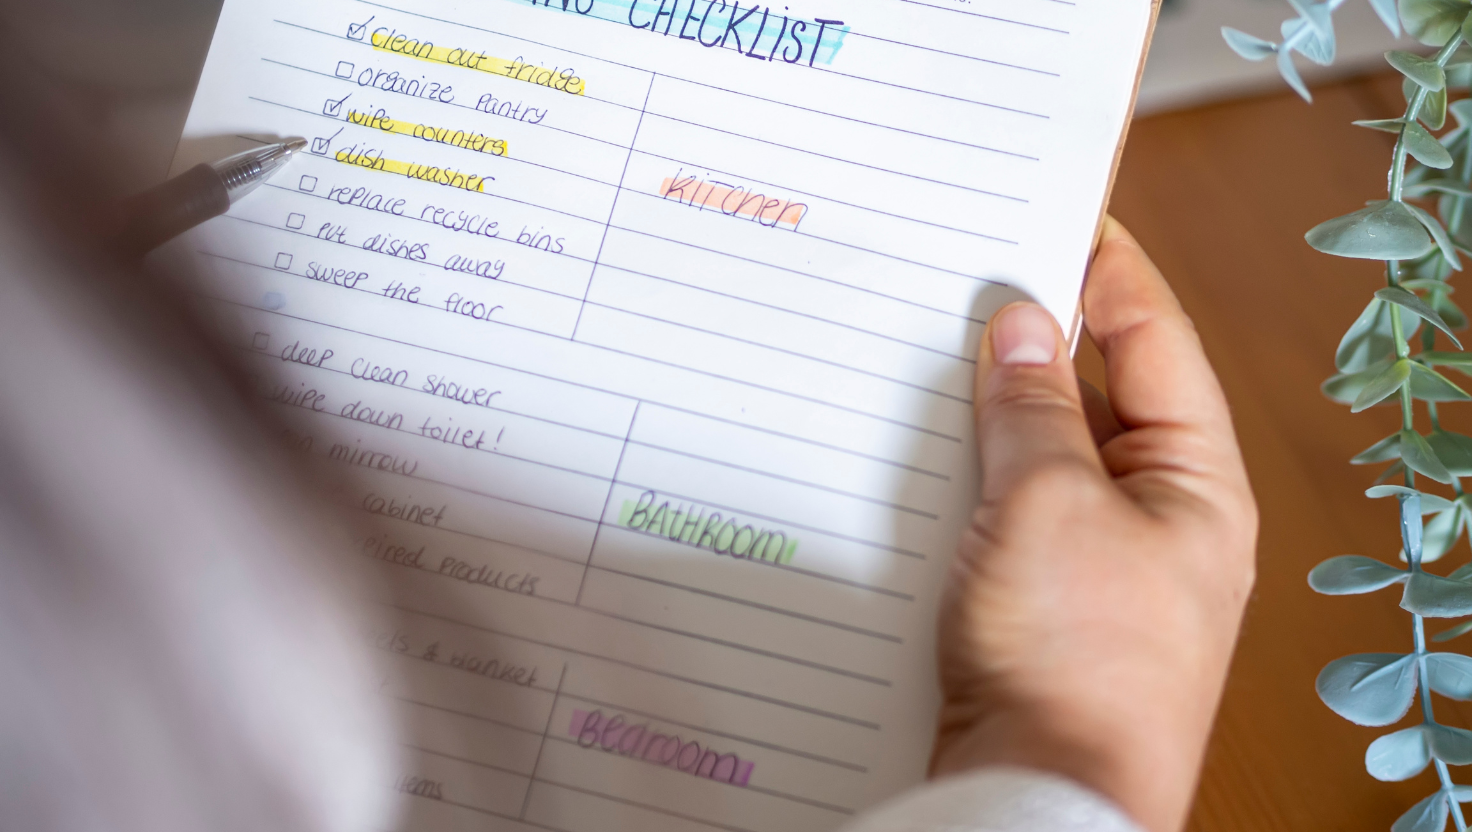 CHECKLIST
clean out fridge
organize pantry
wipe counters
dish washer
replace recycle bins
put dishes away
sweep the floor
KITCHEN
deep clean shower
wipe down toilet!
mirrow
cabinet
products
BATHROOM
& wanket
Bedroom